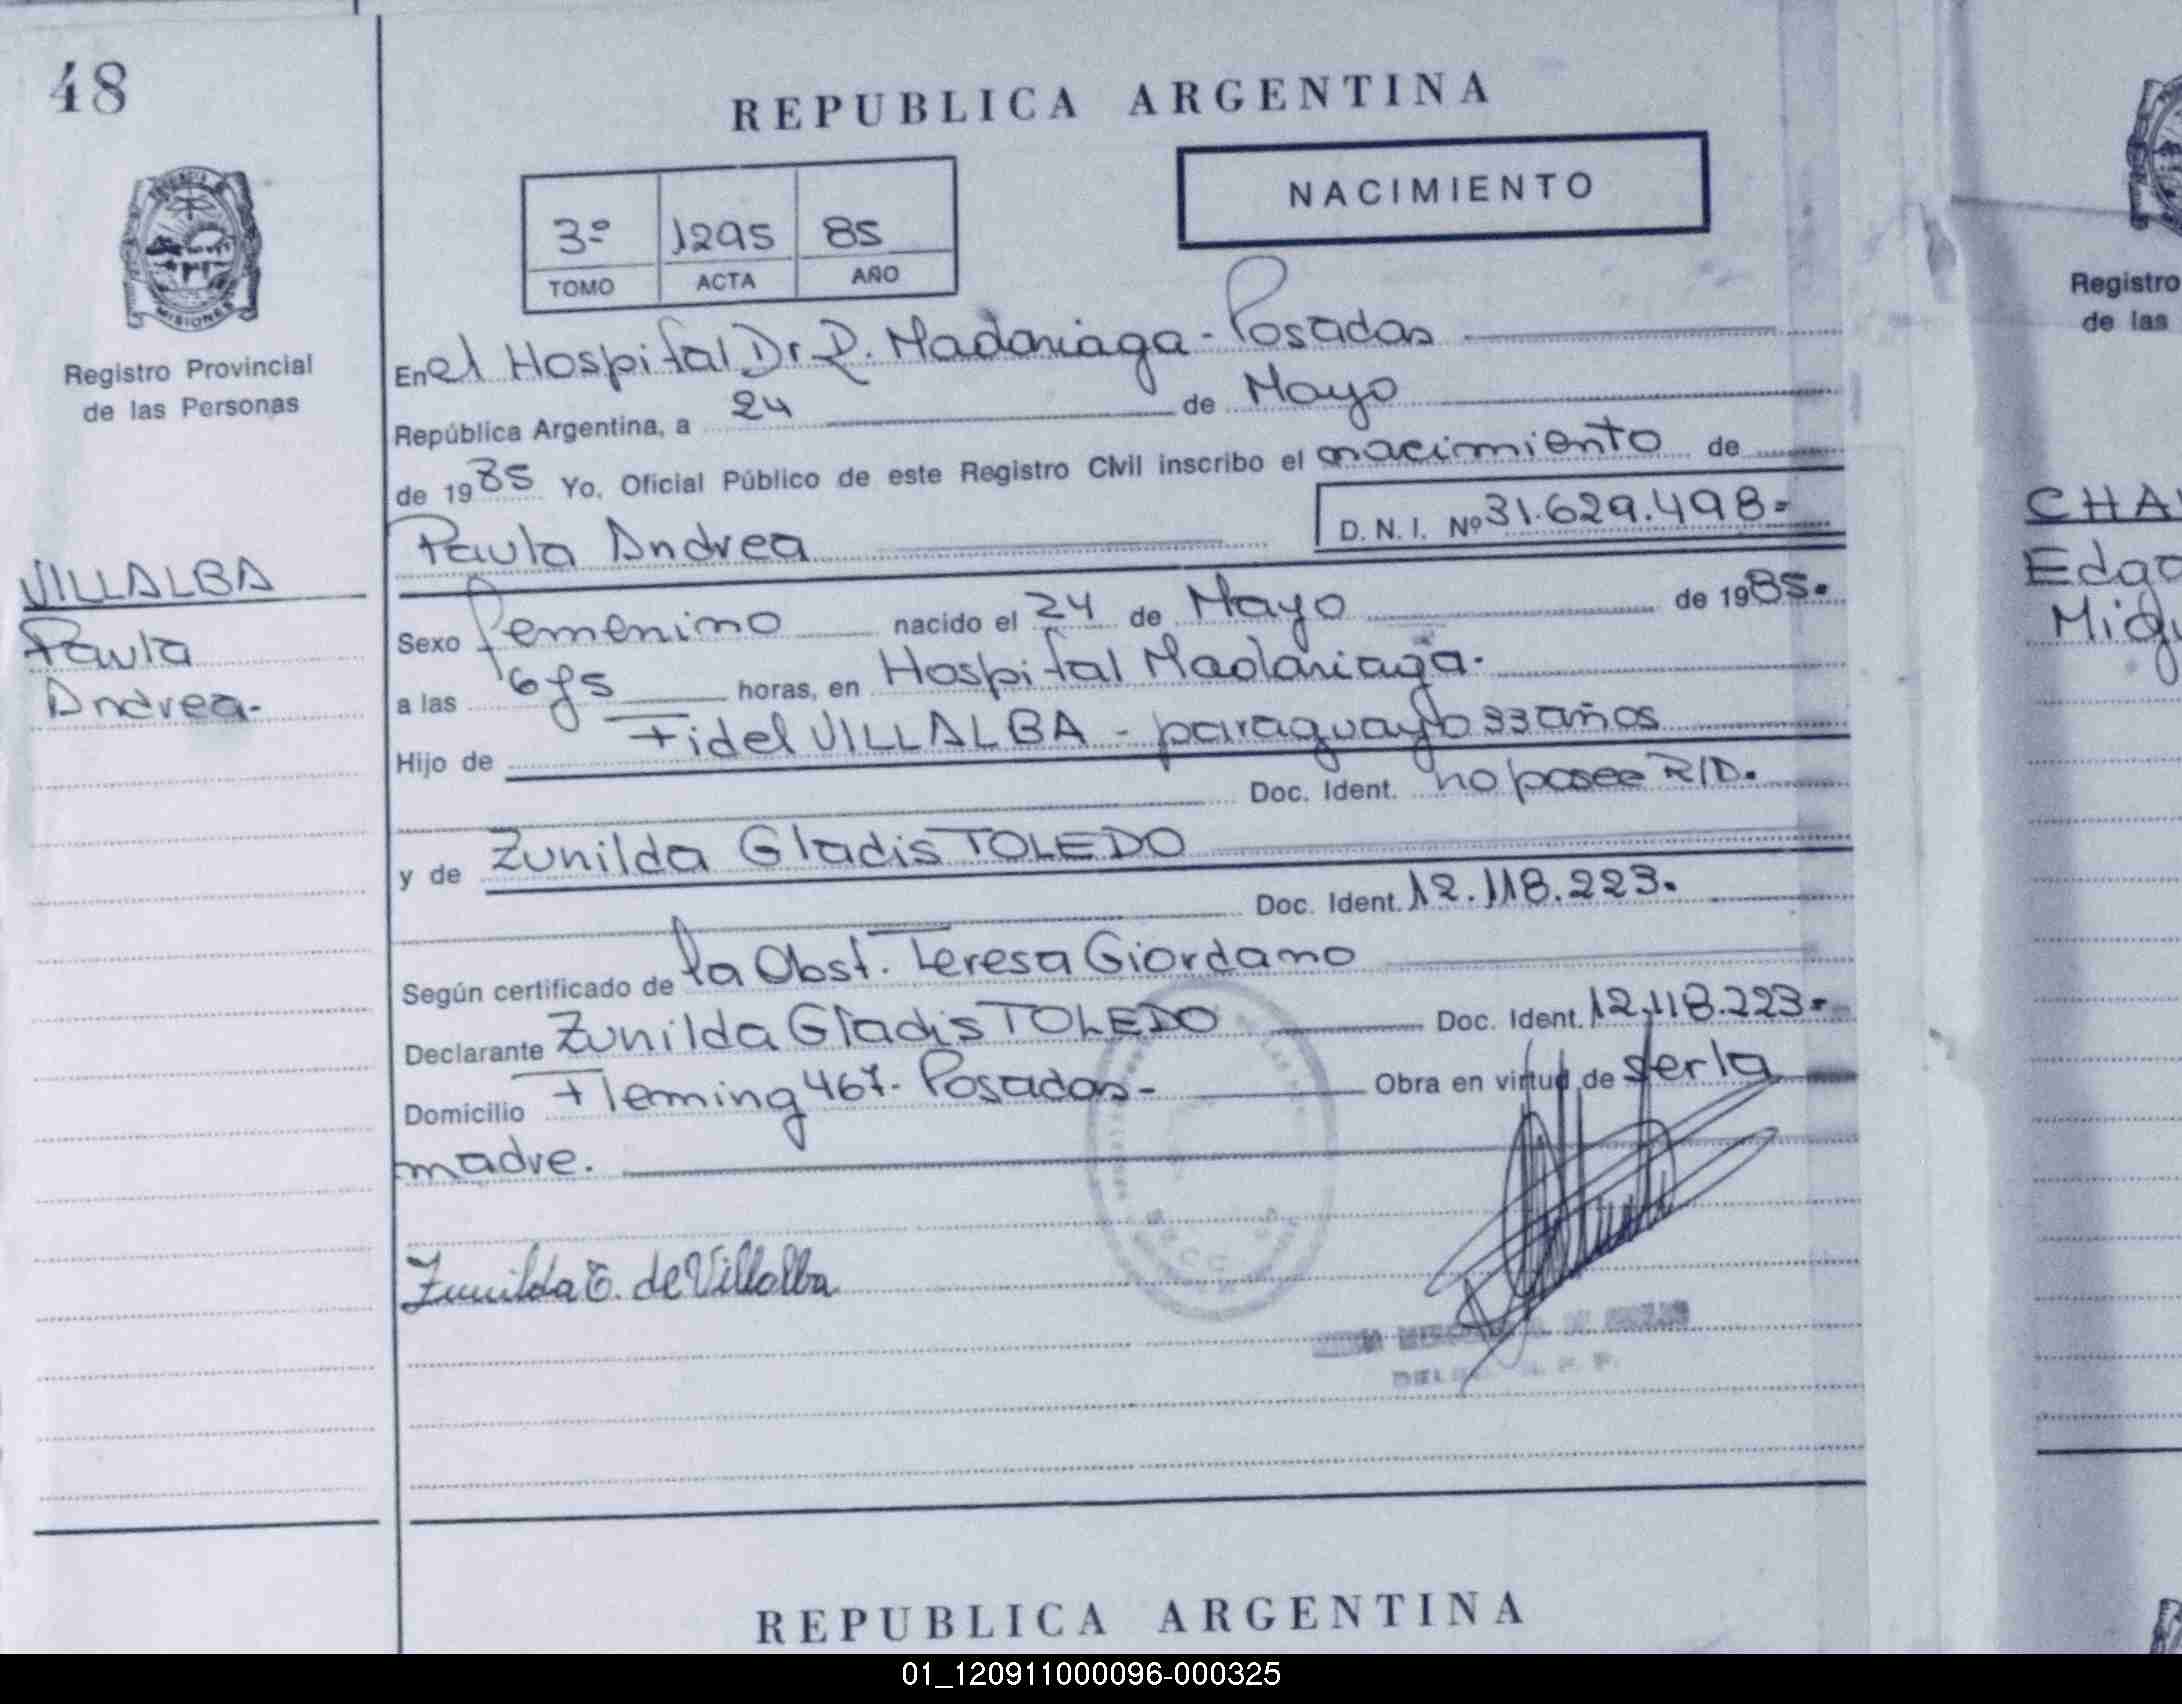 48
REPUBLICA ARGENTINA
NACIMIENTO
3º 1295 85
TOMO ACTA AÑO
MISIONES
Registro Provincial
de las Personas
En el Hospital Dr R. Madariaga - Posadas
República Argentina, a 24 de Mayo
de 1985 Yo, Oficial Público de este Registro Civil inscribo el nacimiento de
Paula Andrea D.N.I. Nº 31.629.498-
VILLALBA
Paula
Andrea.
Sexo femenino nacido el 24 de Mayo de 1985.
a las horas, en Hospital Madariaga.
Hijo de Fidel VILLALBA - paraguayo 33 años
Doc. Ident. no posee R/D.
y de Zunilda Gladis TOLEDO
Doc. Ident. 12.118.223.
Según certificado de la Obst. Teresa Giordano
Declarante Zunilda Gladis TOLEDO Doc. Ident. 12.118.223-
Domicilio Fleming 467- Posadas- Obra en virtud de ser la
madre.
Zunilda T. de Villalba
REPUBLICA ARGENTINA
Registro
de las
CHA
Edga
Migu
01_120911000096-000325